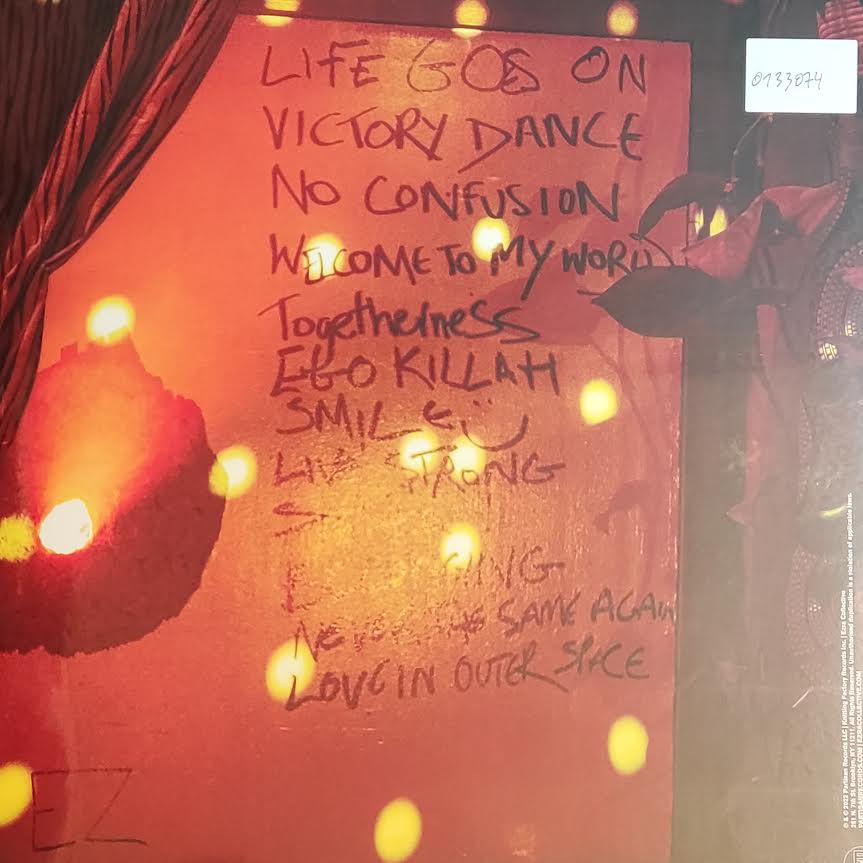 LIFE GOES ON
VICTORY DANCE
NO CONFUSION
WELCOME TO MY WORLD
Togetherness
EGO KILLAH
SMILE
LIVE STRONG
S
NEVER THE SAME AGAIN
LOVE IN OUTER SPACE
EZ
0133074
℗ & © 2022 Partisan Records LLC | Knitting Factory Records Inc. | Ezra Collective
281 N. 7th St, Brooklyn, NY 11211. All Rights Reserved. Unauthorised duplication is a violation of applicable laws.
PARTISANRECORDS.COM | EZRACOLLECTIVE.COM